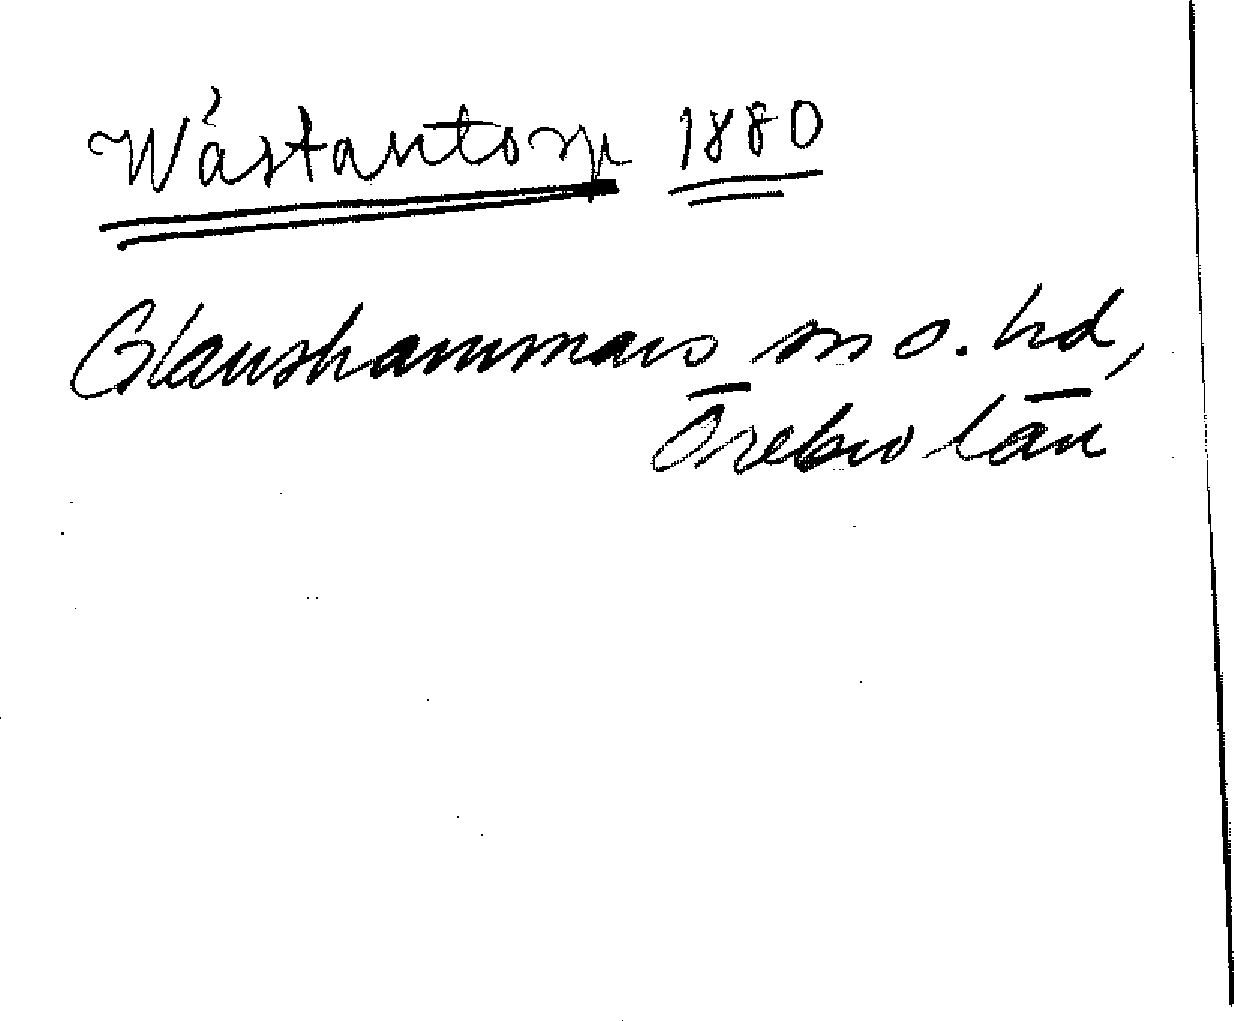 Wästantorp 1880
Glanshammars sn o. hd,
Örebro län